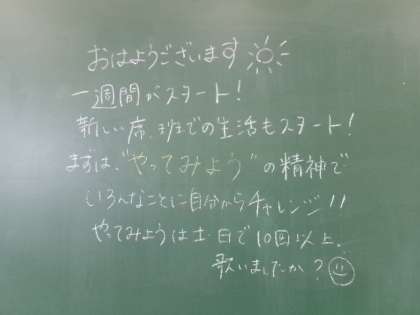 おはようございます
一週間がスタート!
新しい席、班での生活もスタート!
まずは、"やってみよう"の精神で
いろんなことに自分からチャレンジ!!
やってみようは土・日で10回以上、
歌いましたか?